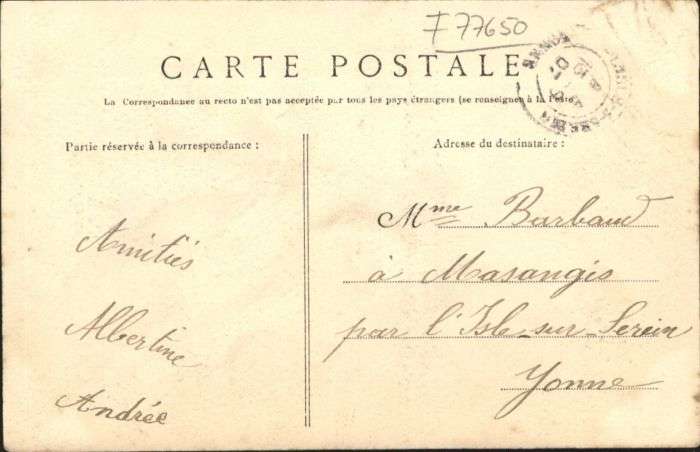 F 77650
CARTE POSTALE
La Correspondance au recto n'est pas acceptée par tous les pays étrangers (se renseigner à la Poste)
Partie réservée à la correspondance :
Adresse du destinataire :
Amitiés
Albertine
Andrée
Mme Burbaud
à Masangis
par l'Isle-sur-Serein
Yonne